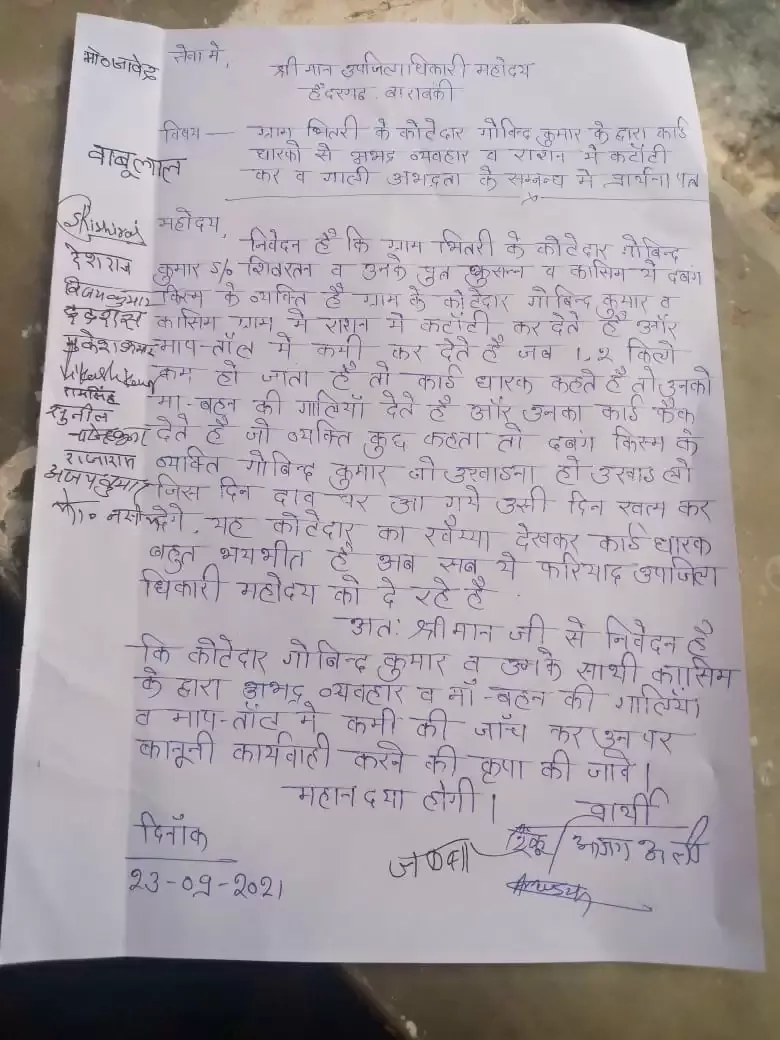 सेवा में,
श्रीमान उपजिलाधिकारी महोदय
हैदरगढ़ बाराबंकी
विषय — ग्राम भितरी के कोटेदार गोबिन्द कुमार के द्वारा कार्ड
धारको से अभद्र व्यवहार व राशन में कटौटी
कर व गाली अभद्रता के सम्बन्ध में प्रार्थना पत्र
महोदय,
निवेदन है कि ग्राम भितरी के कोटेदार गोबिन्द
कुमार S/o शिवरतन व उनके पुत्र व कासिम ये दबंग
किस्म के व्यक्ति है ग्राम के कोटेदार गोबिन्द कुमार व
कासिम ग्राम में राशन में कटौटी कर देते है और
माप-तौल में कमी कर देते है जब 1,2 किलो
कम हो जाता है तो कार्ड धारक कहते है तो उनको
मा-बहन की गालियाँ देते है और उनका कार्ड फेक
देते है जो व्यक्ति कुछ कहता तो दबंग किस्म के
व्यक्ति गोबिन्द कुमार जो उखाडना हो उखाड लो
जिस दिन दाव पर आ गये उसी दिन खत्म कर
देगे, यह कोटेदार का रवैय्या देखकर कार्ड धारक
बहुत भयभीत है अब सब ये फरियाद उपजिला
धिकारी महोदय को दे रहे है
अतः श्रीमान जी से निवेदन है
कि कोटेदार गोबिन्द कुमार व उनके साथी कासिम
के द्वारा अभद्र व्यवहार व माँ-बहन की गालियाँ
व माप-तौल में कमी की जाँच कर उन पर
कानूनी कार्यवाही करने की कृपा की जावे।
महान दया होगी।
प्रार्थी
दिनाँक
23-09-2021
बाबूलाल
देशराज
विजयकुमार
मुकेश कुमार
रामसिंह
सुनील
राजाराम
अजय कुमार